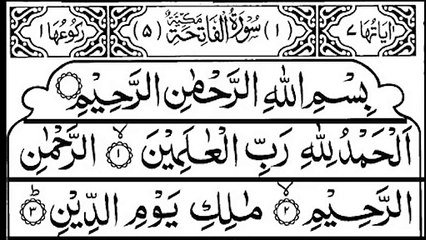 اٰیَاتُهَا ۷ (۱) سُوْرَةُ الْفَاتِحَةِ مَكِّيَّةٌ (۵) رُكُوْعُهَا ۱
بِسْمِ اللهِ الرَّحْمٰنِ الرَّحِيْمِ
اَلْحَمْدُ لِلّٰهِ رَبِّ الْعٰلَمِيْنَ ۙ‏﴿۱﴾ الرَّحْمٰنِ
الرَّحِيْمِ ۙ‏﴿۲﴾ مٰلِكِ يَوْمِ الدِّيْنِ ؕ‏﴿۳﴾